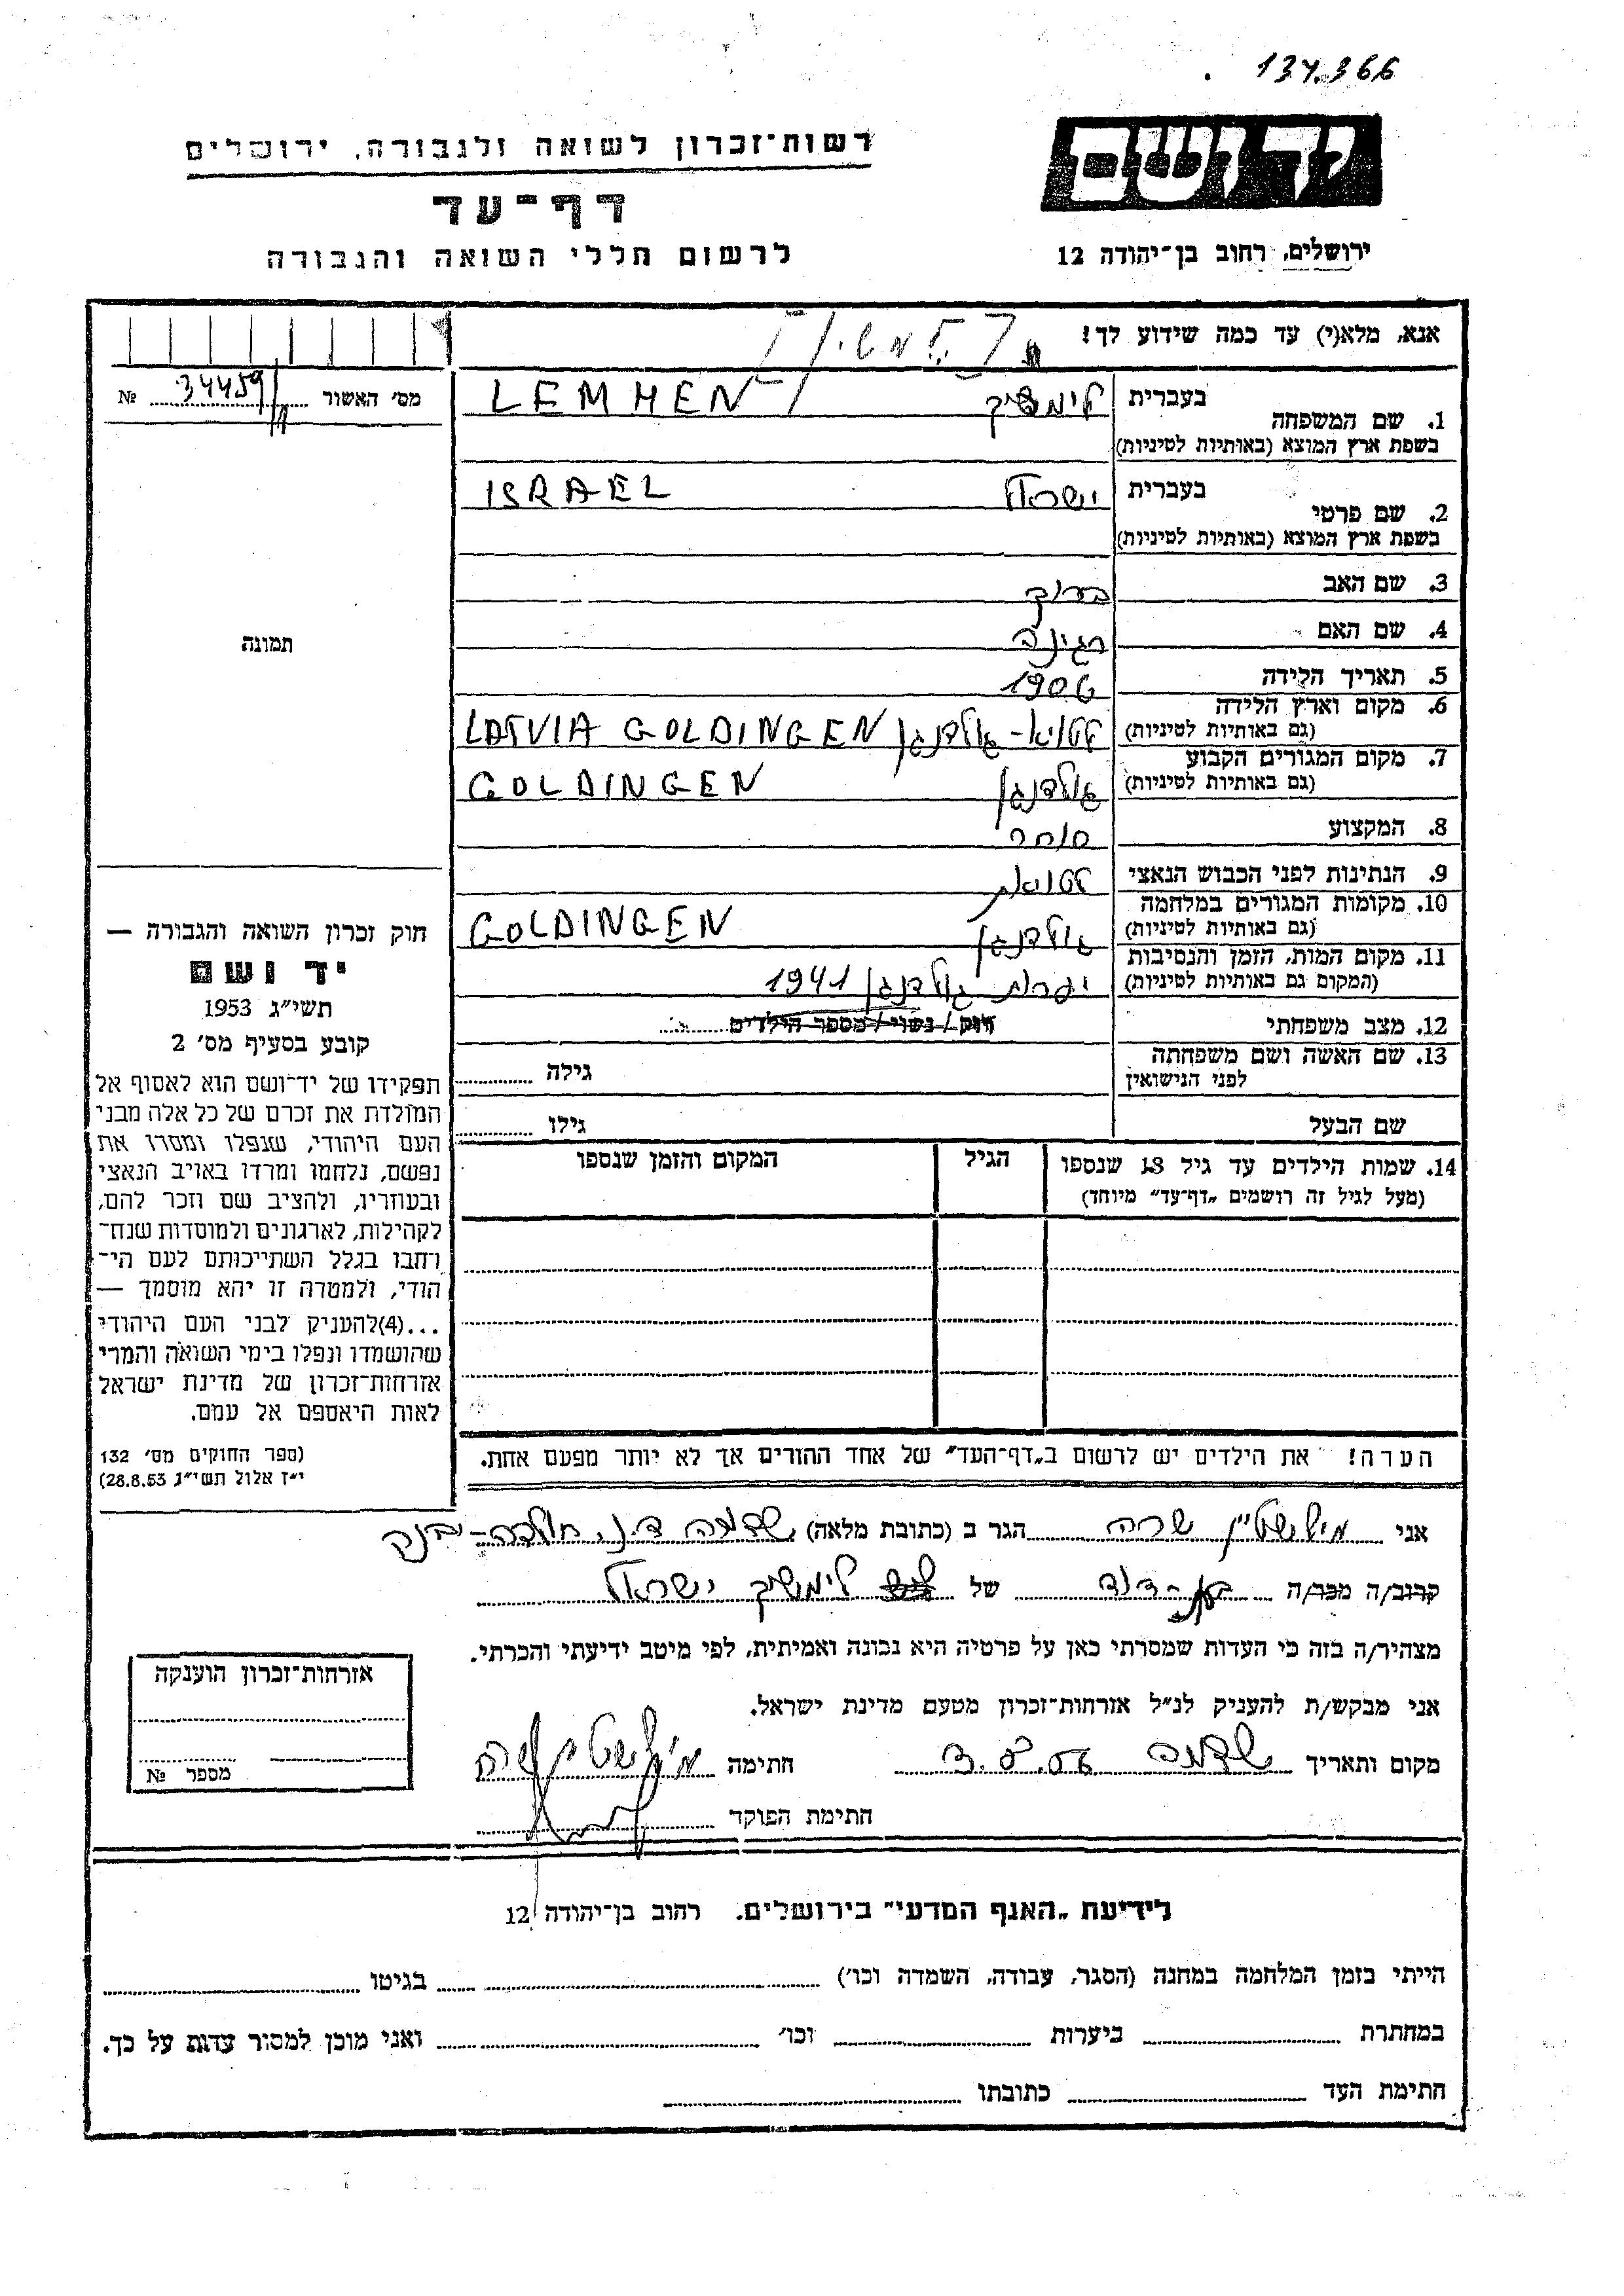 134366
רשות־זכרון לשואה ולגבורה, ירושלים
יד ושם
דף־עד
לרשום חללי השואה והגבורה
ירושלים, רחוב בן־יהודה 12
אנא, מלא(י) עד כמה שידוע לך!
מס׳ האשור 34459 №
1. שם המשפחה בעברית LEMHEN
בשפת ארץ המוצא (באותיות לטיניות)
2. שם פרטי בעברית ישראל ISRAEL
בשפת ארץ המוצא (באותיות לטיניות)
3. שם האב ברוך
4. שם האם רגינה
תמונה
5. תאריך הלידה 1906
6. מקום וארץ הלידה
(גם באותיות לטיניות) לטויא - גולדנגן LATVIA GOLDINGEN
7. מקום המגורים הקבוע
(גם באותיות לטיניות) גולדנגן GOLDINGEN
8. המקצוע סוחר
9. הנתינות לפני הכבוש הנאצי לטויאת
10. מקומות המגורים במלחמה
(גם באותיות לטיניות) גולדנגן GOLDINGEN
11. מקום המות, הזמן והנסיבות
(המקום גם באותיות לטיניות) יערות גולדנגן 1941
12. מצב משפחתי רווק / נשוי / מספר הילדים
13. שם האשה ושם משפחתה
לפני הנישואין גילה
שם הבעל גילו
14. שמות הילדים עד גיל 18 שנספו הגיל המקום והזמן שנספו
(מעל לגיל זה רושמים „דף־עד” מיוחד)
הערה! את הילדים יש לרשום ב„דף־העד” של אחד ההורים אך לא יותר מפעם אחת.
חוק זכרון השואה והגבורה —
יד ושם
תשי״ג 1953
קובע בסעיף מס׳ 2
תפקידו של יד־ושם הוא לאסוף אל
המולדת את זכרם של כל אלה מבני
העם היהודי, שנפלו ומסרו את
נפשם, נלחמו ומרדו באויב הנאצי
ובעוזריו, ולהציב שם וזכר להם,
לקהילות, לארגונים ולמוסדות שנח־
רחבו בגלל השתייכותם לעם הי־
הודי, ולמטרה זו יהא מוסמך —
...(4) להעניק לבני העם היהודי
שהושמדו ונפלו בימי השואה והמרי
אזרחות־זכרון של מדינת ישראל
לאות היאספם אל עמם.
(ספר החוקים מס׳ 132
י״ז אלול תשי״ג 28.8.53)
אני מילשטיין שרה הגר ב (כתובת מלאה) שדמה ד.נ.
קרוב/ה מכר/ה בן-דוד של לימשיך ישראל
מצהיר/ה בזה כי העדות שמסרתי כאן על פרטיה היא נכונה ואמיתית, לפי מיטב ידיעתי והכרתי.
אני מבקש/ת להעניק לנ״ל אזרחות־זכרון מטעם מדינת ישראל.
מקום ותאריך שדמה 3.5.56 חתימה מילשטיין שרה
חתימת הפוקד
אזרחות־זכרון הוענקה
מספר №
לידיעת „האגף המדעי” בירושלים. רחוב בן־יהודה 12
הייתי בזמן המלחמה במחנה (הסגר, עבודה, השמדה וכו׳) בגיטו
במחתרת ביערות וכו׳ ואני מוכן למסור עדות על כך.
חתימת העד כתובתו